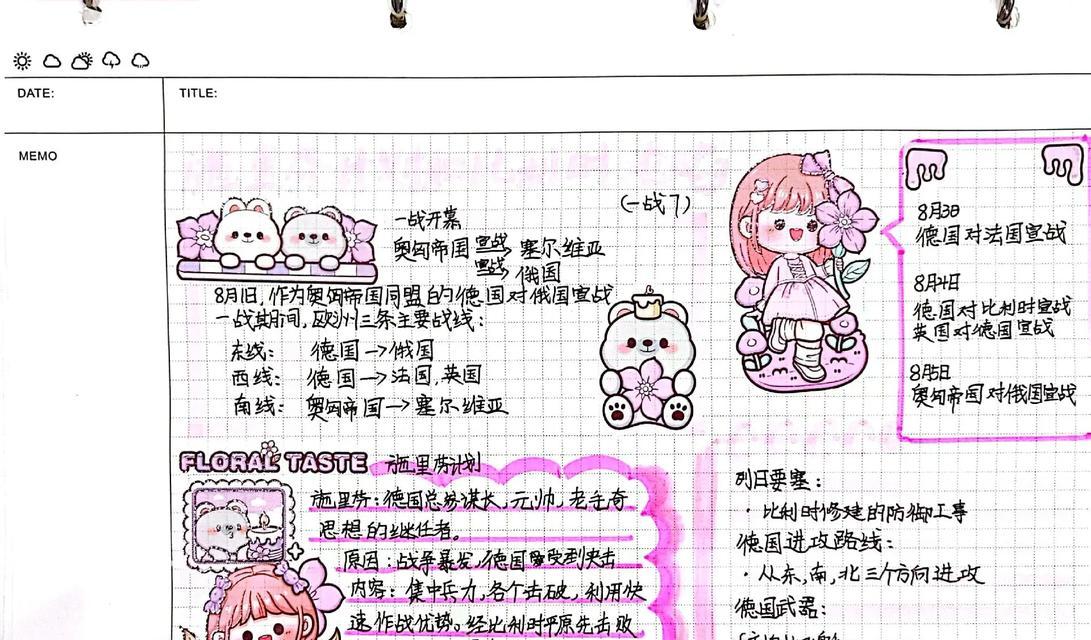 DATE:
TITLE:
MEMO
(一战7)
一战开幕
奥匈帝国 宣战 塞尔维亚
宣战 俄国
8月1日,作为奥匈帝国同盟的德国对俄国宣战
一战期间,欧洲三条主要战线:
东线: 德国→俄国
西线: 德国→法国,英国
南线: 奥匈帝国→塞尔维亚
8月3日
德国对法国宣战
8月4日
德国对比利时宣战
英国对德国宣战
8月5日
奥匈帝国对俄国宣战
FLORAL TASTE 施里芬计划
施里芬:德国总参谋长,元帅,老毛奇
思想的继任者。
原因:战争暴发,德国受到夹击
内容:集中兵力,各个击破,利用快
速作战优势。经比利时平原先击败
列日要塞:
· 比利时修建的防御工事
德国进攻路线:
· 从东,南,北三个方向进攻
德国武器: